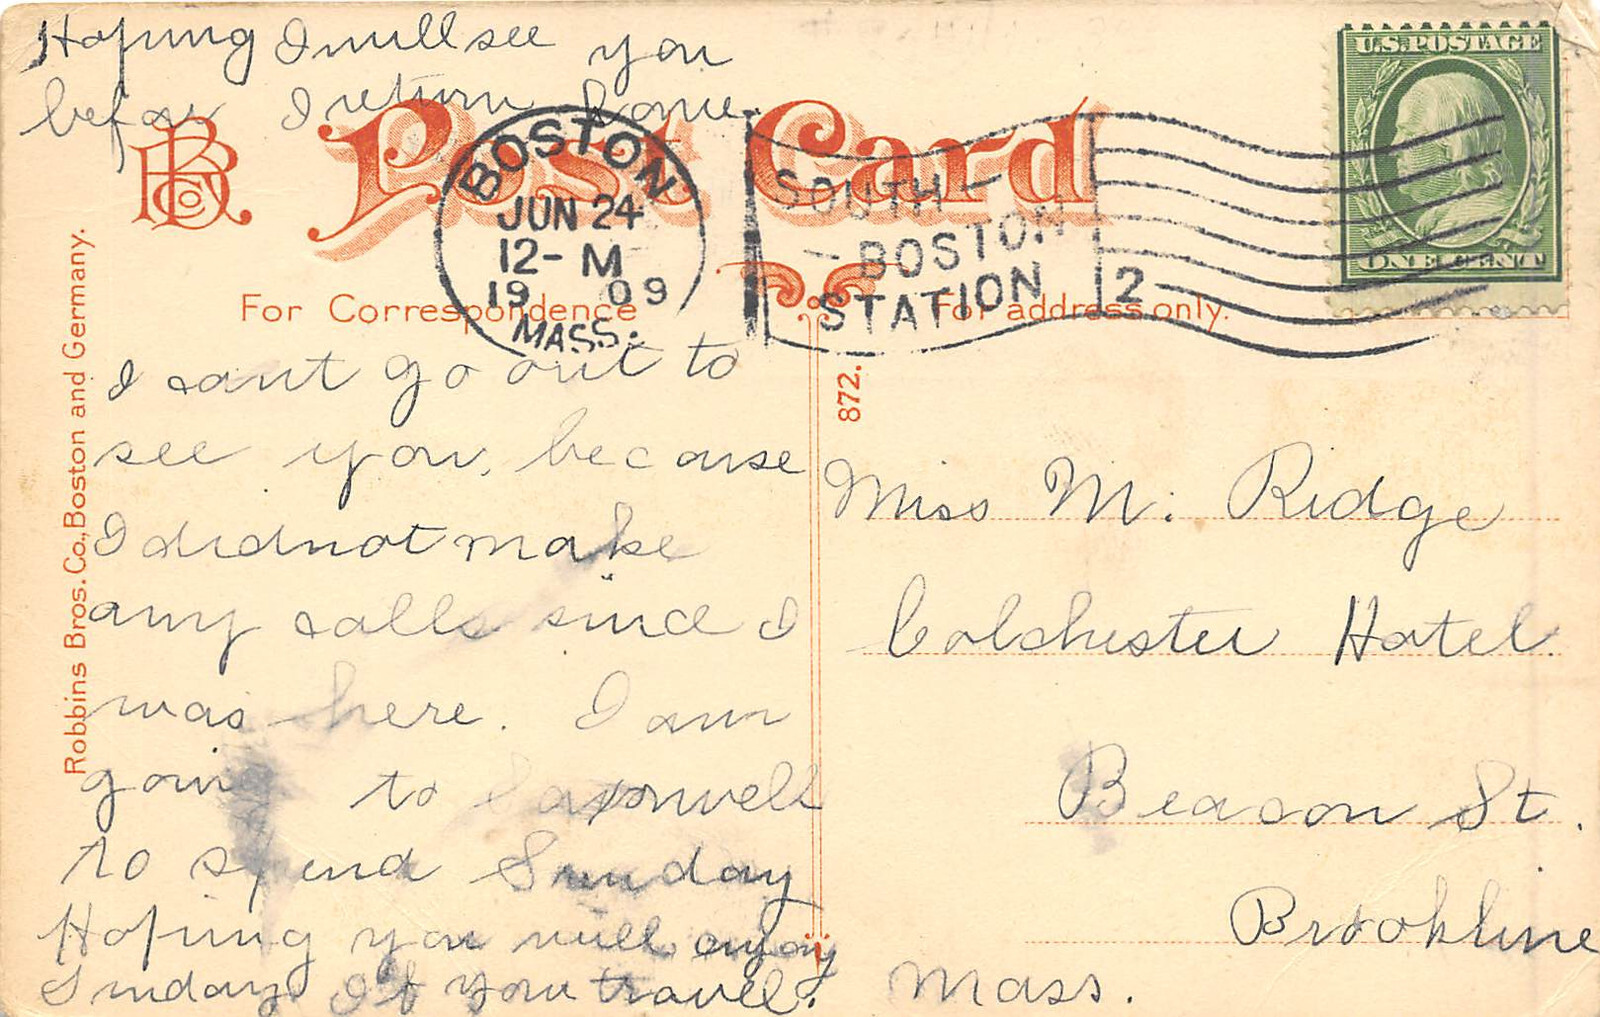 Hoping I will see you
before I return home.
RB Co
Post Card
BOSTON
JUN 24
12-M
1909
MASS.
SOUTH-
-BOSTON
STATION
2
U.S. POSTAGE
ONE CENT
For Correspondence
For address only.
872.
Robbins Bros. Co., Boston and Germany.
I cant go out to
see you, because
I did not make
any calls since I
was here. I am
going to
to spend Sunday
Hoping you will enjoy
Sunday If you travel.
Miss M. Ridge
Colchester Hotel.
Beacon St.
Brookline
Mass.